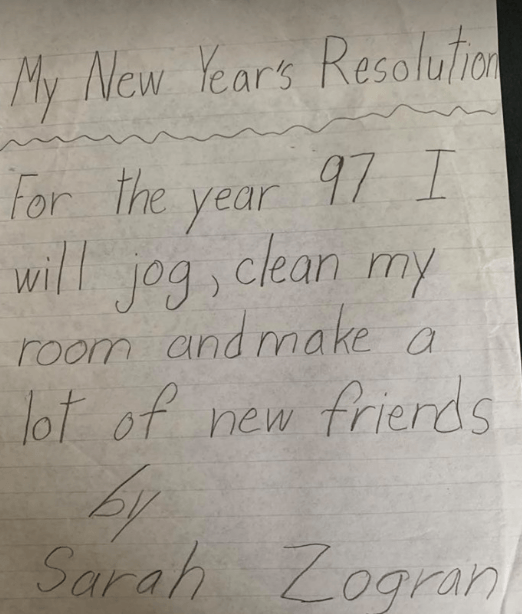 My New Year's Resolution
For the year 97 I
will jog, clean my
room and make a
lot of new friends
by
Sarah Zogran